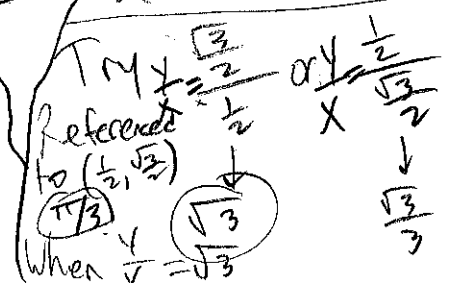 Try y/x = (√3/2)/(1/2) or y/x = (1/2)/(√3/2)
Referenced
to (1/2, √3/2) ↓ ↓
π/3 √3 √3/3
When y/x = √3